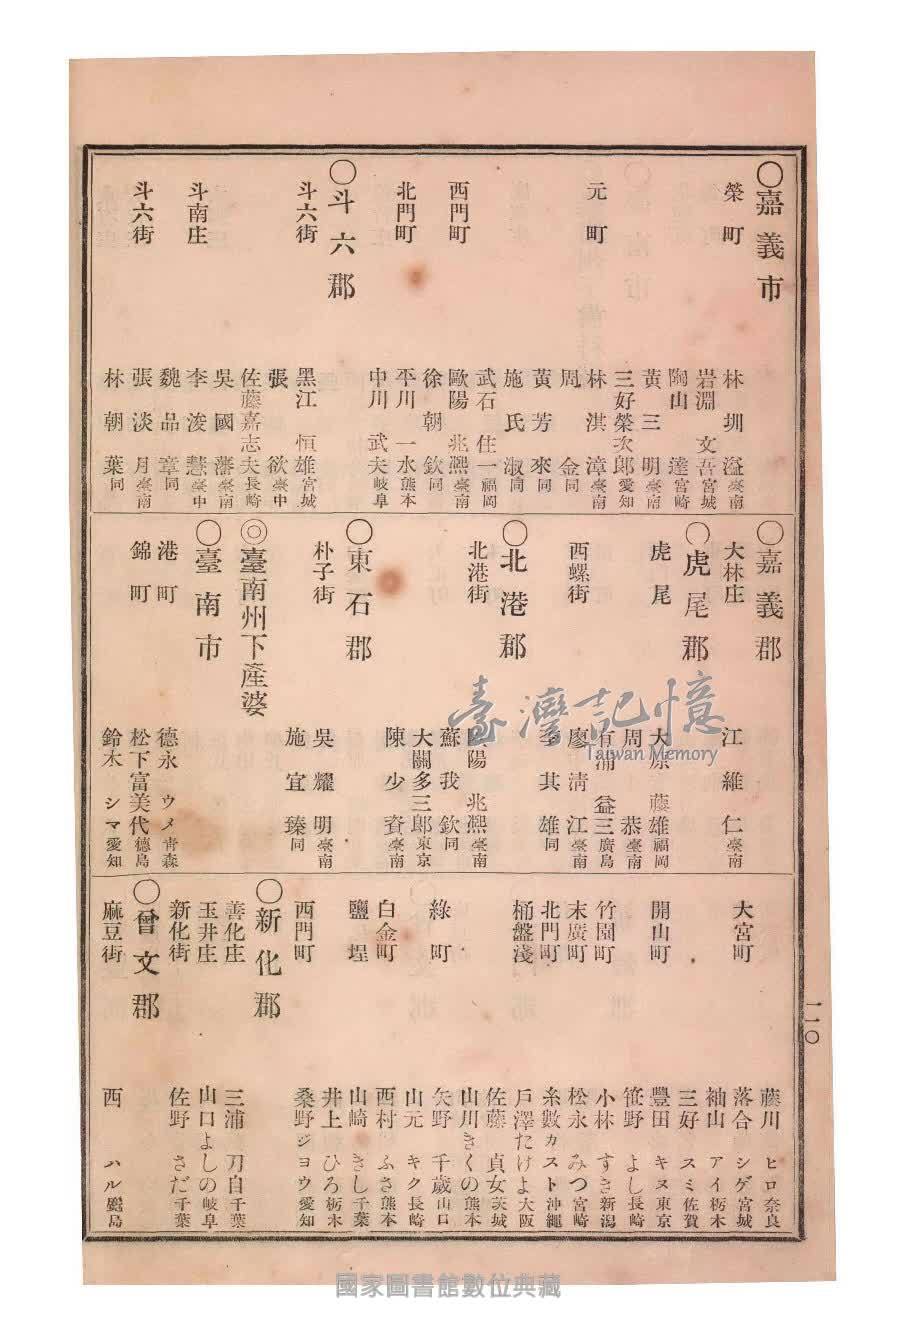 〇嘉義市
榮町 林圳溢 臺南
岩淵文吾 宮城
陶山達 宮崎
黃三明 臺南
三好榮次郎 愛知
元町 林淇漳 臺南
周金 同
黃芳來 同
施氏淑 同
武石住一 福岡
西門町 歐陽兆熙 臺南
徐朝欽 同
北門町 平川一水 熊本
中川武夫 岐阜
〇斗六郡
斗六街 黑江恒雄 宮城
張欲 臺中
佐藤嘉志夫 長崎
吳國藩 臺南
斗南庄 李浚慧 臺中
魏品章 同
斗六街 張淡月 臺南
林朝葉 同
〇嘉義郡
大林庄 江維仁 臺南
〇虎尾郡
虎尾 大原藤雄 福岡
周恭 臺南
有浦益三 廣島
西螺街 廖淸江 臺南
李其雄 同
〇北港郡
北港街 歐陽兆熙 臺南
蘇我欽 同
大關多三郎 東京
陳少賓 臺南
〇東石郡
朴子街 吳耀明 臺南
施宜臻 同
◎臺南州下產婆
〇臺南市
港町 德永ウメ 靑森
錦町 松下富美代 德島
鈴木シマ 愛知
藤川ヒロ 奈良
大宮町 落合シゲ 宮城
袖山アイ 栃木
三好スミ 佐賀
開山町 豐田キヌ 東京
笹野よし 長崎
竹園町 小林すき 新潟
末廣町 松永みつ 宮崎
北門町 糸數カスト 沖繩
桶盤淺 戶澤たけよ 大阪
佐藤貞女 茨城
山川きくの 熊本
綠町 矢野千歲 山口
山元キク 長崎
白金町 西村ふさ 熊本
鹽埕 山崎きし 千葉
井上ひろ 栃木
西門町 桑野ジヨウ 愛知
〇新化郡
善化庄 三浦刀自 千葉
玉井庄 山口よしの 岐阜
新化街 佐野さだ 千葉
〇曾文郡
麻豆街 西ハル 鹿島
一一〇
臺灣記憶
Taiwan Memory
國家圖書館數位典藏